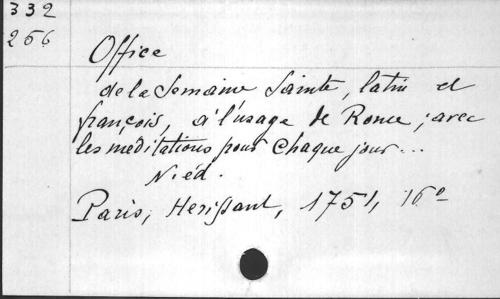 332
256
Office
de la Semaine Sainte, latin et
français, à l'usage de Rome ; avec
les méditations pour chaque jour...
N. éd.
Paris, Herissant, 1751, 16º